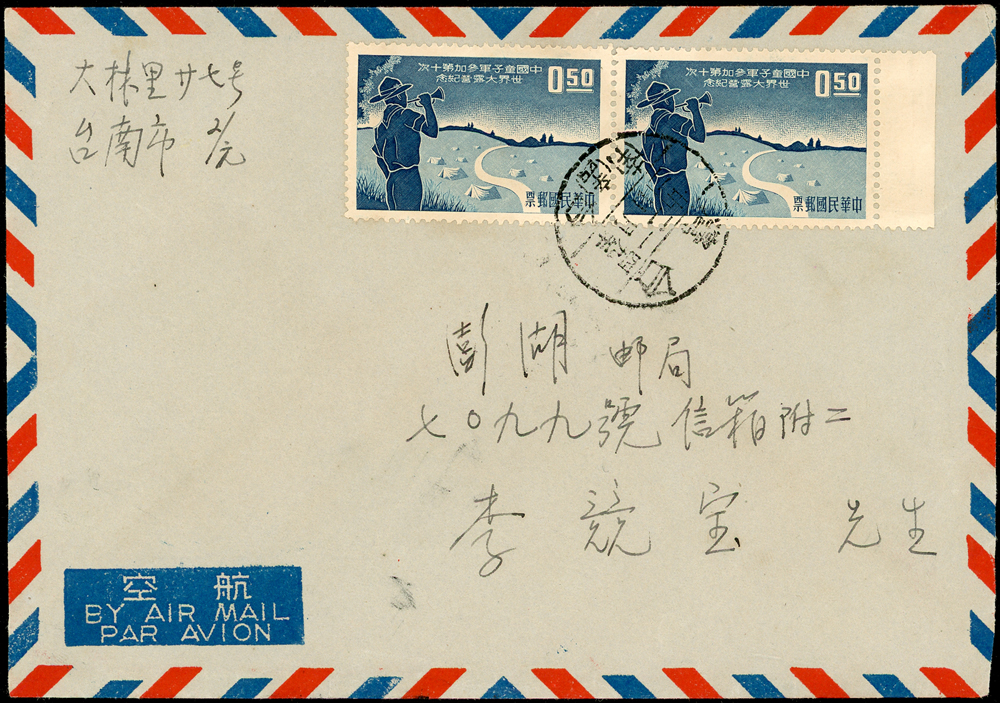 大林里廿七号
台南市
中國童子軍參加第十次
世界大露營紀念
0.50
中華民國郵票
中國童子軍參加第十次
世界大露營紀念
0.50
中華民國郵票
澎湖郵局
七〇九九號信箱附二
李競宝 先生
空航
BY AIR MAIL
PAR AVION